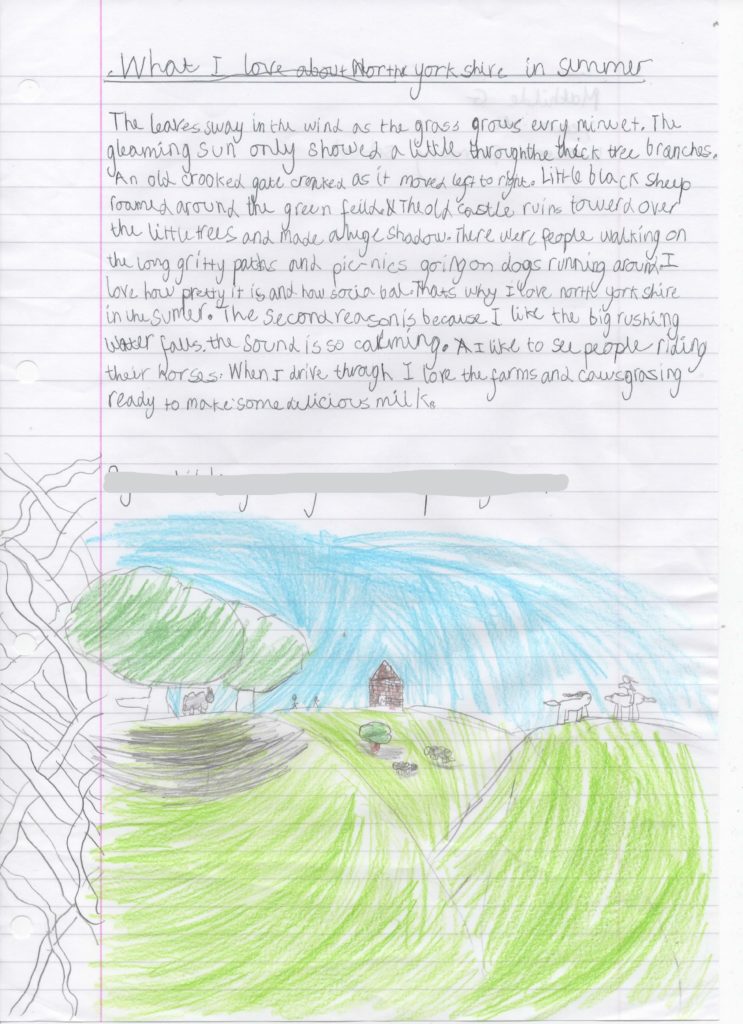 What I love about North yorkshire in summer
The leaves sway in the wind as the grass grows evry minuet. The
gleaming sun only showed a little through the thick tree branches.
An old crooked gate croaked as it moved left to right. Little black sheep
roamed around the green feild. The old castle ruins towerd over
the little trees and made a huge shadow. There were people walking on
the long gritty paths and pic-nics going on dogs running around. I
love how pretty it is and how socia bal. Thats why I love north yorkshire
in the sumer. The second reason is because I like the big rushing
water falls. the sound is so calming. I like to see people riding
their horses. When I drive through I love the farms and caws grasing
ready to make some delicious milk.